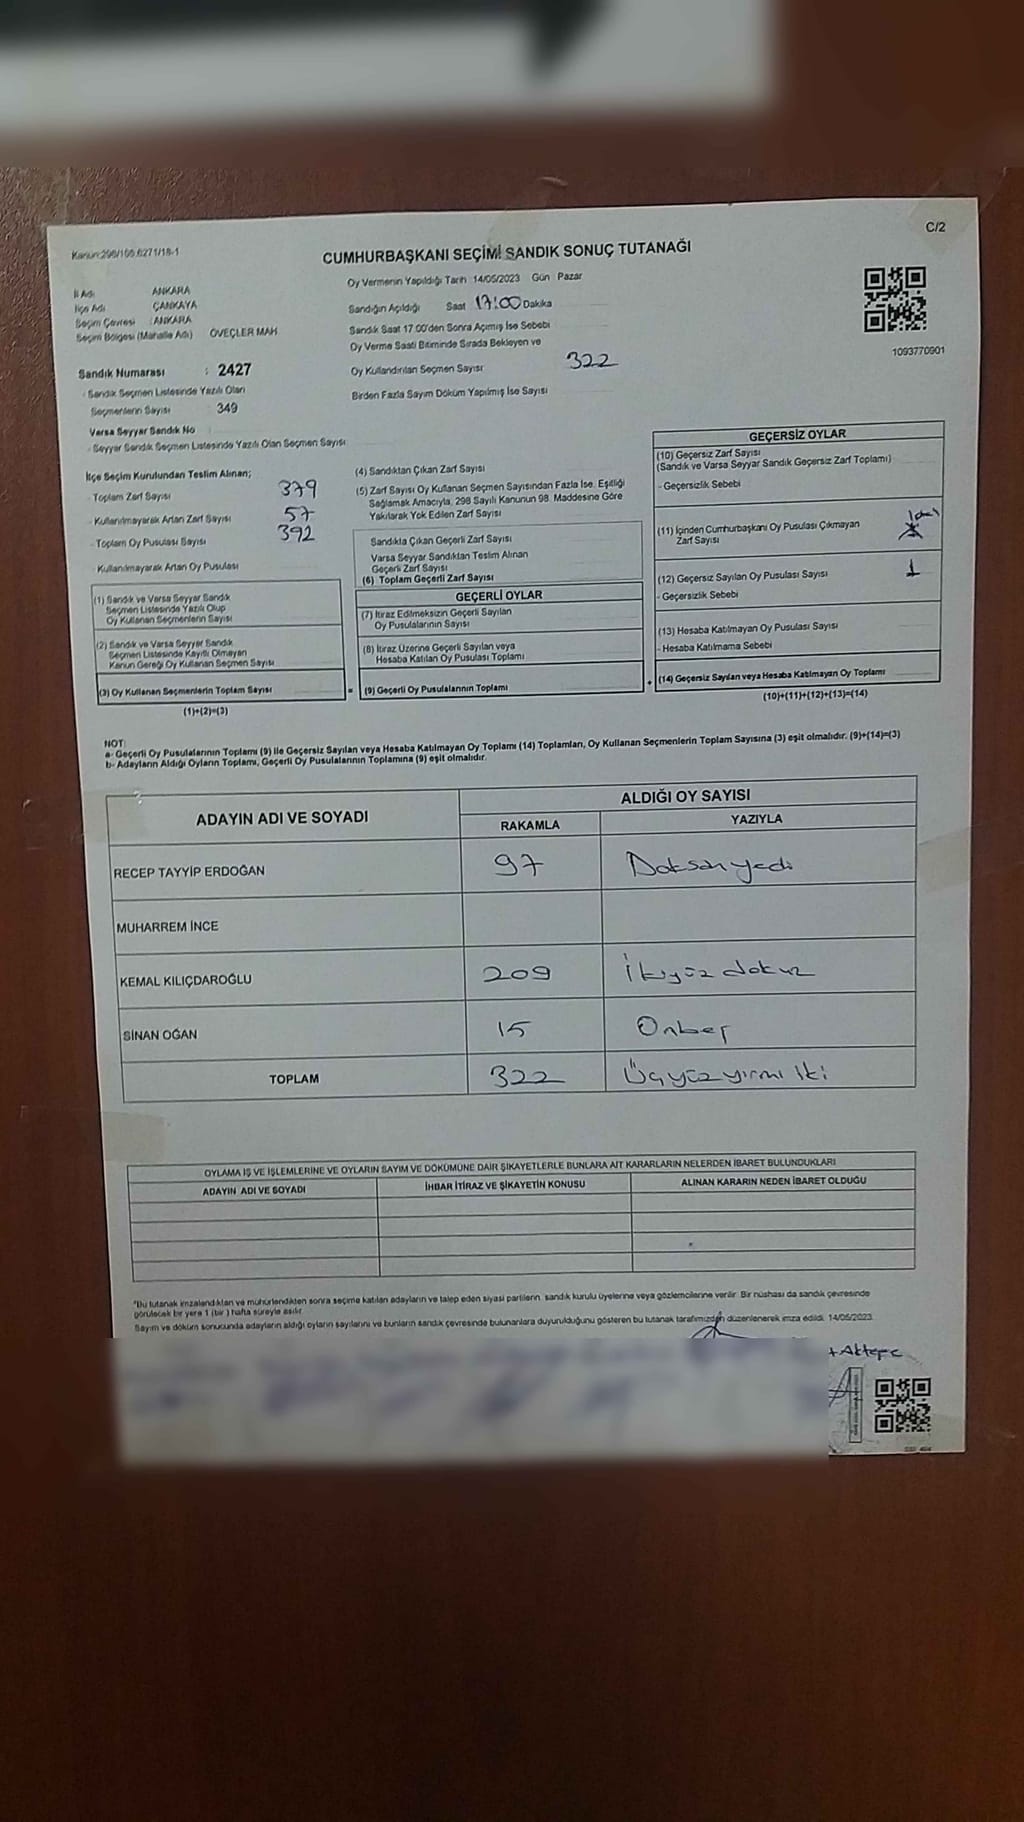 Kanun:298/106.6271/18-1
C/2
CUMHURBAŞKANI SEÇİMİ SANDIK SONUÇ TUTANAĞI
Oy Vermenin Yapıldığı Tarih 14/05/2023 Gün Pazar
İl Adı ANKARA
İlçe Adı ÇANKAYA
Seçim Çevresi : ANKARA
Seçim Bölgesi (Mahalle Adı) ÖVEÇLER MAH.
Sandığın Açıldığı Saat 17:00 Dakika
Sandık Saat 17:00'den Sonra Açımış İse Sebebi
Oy Verme Saati Bitiminde Sırada Bekleyen ve
Oy Kullandırılan Seçmen Sayısı 322
Birden Fazla Sayım Döküm Yapılmış İse Sayısı
1093770901
Sandık Numarası : 2427
- Sandık Seçmen Listesinde Yazılı Olan
Seçmenlerin Sayısı 349
Varsa Seyyar Sandık No
- Seyyar Sandık Seçmen Listesinde Yazılı Olan Seçmen Sayısı
İlçe Seçim Kurulundan Teslim Alınan;
- Toplam Zarf Sayısı 379
- Kullanılmayarak Artan Zarf Sayısı 57
- Toplam Oy Pusulası Sayısı 392
- Kullanılmayarak Artan Oy Pusulası
(1) Sandık ve Varsa Seyyar Sandık
Seçmen Listesinde Yazılı Olup
Oy Kullanan Seçmenlerin Sayısı
(2) Sandık ve Varsa Seyyar Sandık
Seçmen Listesinde Kayıtlı Olmayan
Kanun Gereği Oy Kullanan Seçmen Sayısı
(3) Oy Kullanan Seçmenlerin Toplam Sayısı
(1)+(2)=(3)
(4) Sandıktan Çıkan Zarf Sayısı
(5) Zarf Sayısı Oy Kullanan Seçmen Sayısından Fazla İse, Eşitliği
Sağlamak Amacıyla, 298 Sayılı Kanunun 98. Maddesine Göre
Yakılarak Yok Edilen Zarf Sayısı
Sandıkta Çıkan Geçerli Zarf Sayısı
Varsa Seyyar Sandıktan Teslim Alınan
Geçerli Zarf Sayısı
(6) Toplam Geçerli Zarf Sayısı
GEÇERLİ OYLAR
(7) İtiraz Edilmeksizin Geçerli Sayılan
Oy Pusulalarının Sayısı
(8) İtiraz Üzerine Geçerli Sayılan veya
Hesaba Katılan Oy Pusulası Toplamı
= (9) Geçerli Oy Pusulalarının Toplamı
GEÇERSİZ OYLAR
(10) Geçersiz Zarf Sayısı
(Sandık ve Varsa Seyyar Sandık Geçersiz Zarf Toplamı)
- Geçersizlik Sebebi
(11) İçinden Cumhurbaşkanı Oy Pusulası Çıkmayan
Zarf Sayısı
(12) Geçersiz Sayılan Oy Pusulası Sayısı 1
- Geçersizlik Sebebi
(13) Hesaba Katılmayan Oy Pusulası Sayısı
- Hesaba Katılmama Sebebi
+ (14) Geçersiz Sayılan veya Hesaba Katılmayan Oy Toplamı
(10)+(11)+(12)+(13)=(14)
NOT:
a- Geçerli Oy Pusulalarının Toplamı (9) ile Geçersiz Sayılan veya Hesaba Katılmayan Oy Toplamı (14) Toplamları, Oy Kullanan Seçmenlerin Toplam Sayısına (3) eşit olmalıdır. (9)+(14)=(3)
b- Adayların Aldığı Oyların Toplamı, Geçerli Oy Pusulalarının Toplamına (9) eşit olmalıdır.
ADAYIN ADI VE SOYADI ALDIĞI OY SAYISI
RAKAMLA YAZIYLA
RECEP TAYYİP ERDOĞAN 97 Doksan yedi
MUHARREM İNCE
KEMAL KILIÇDAROĞLU 209 İkiyüz dokuz
SİNAN OĞAN 15 Onbeş
TOPLAM 322 Üçyüz yirmi iki
OYLAMA İŞ VE İŞLEMLERİNE VE OYLARIN SAYIM VE DÖKÜMÜNE DAİR ŞİKAYETLERLE BUNLARA AİT KARARLARIN NELERDEN İBARET BULUNDUKLARI
ADAYIN ADI VE SOYADI İHBAR İTİRAZ VE ŞİKAYETİN KONUSU ALINAN KARARIN NEDEN İBARET OLDUĞU
"Bu tutanak imzalandıktan ve mühürlendikten sonra seçime katılan adayların ve talep eden siyasi partilerin, sandık kurulu üyelerine veya gözlemcilerine verilir. Bir nüshası da sandık çevresinde
görülecek bir yere 1 (bir ) hafta süreyle asılır.
Sayım ve döküm sonucunda adayların aldığı oyların sayılarını ve bunların sandık çevresinde bulunanlara duyurulduğunu gösteren bu tutanak tarafımızdan düzenlenerek imza edildi. 14/05/2023
Aktepe